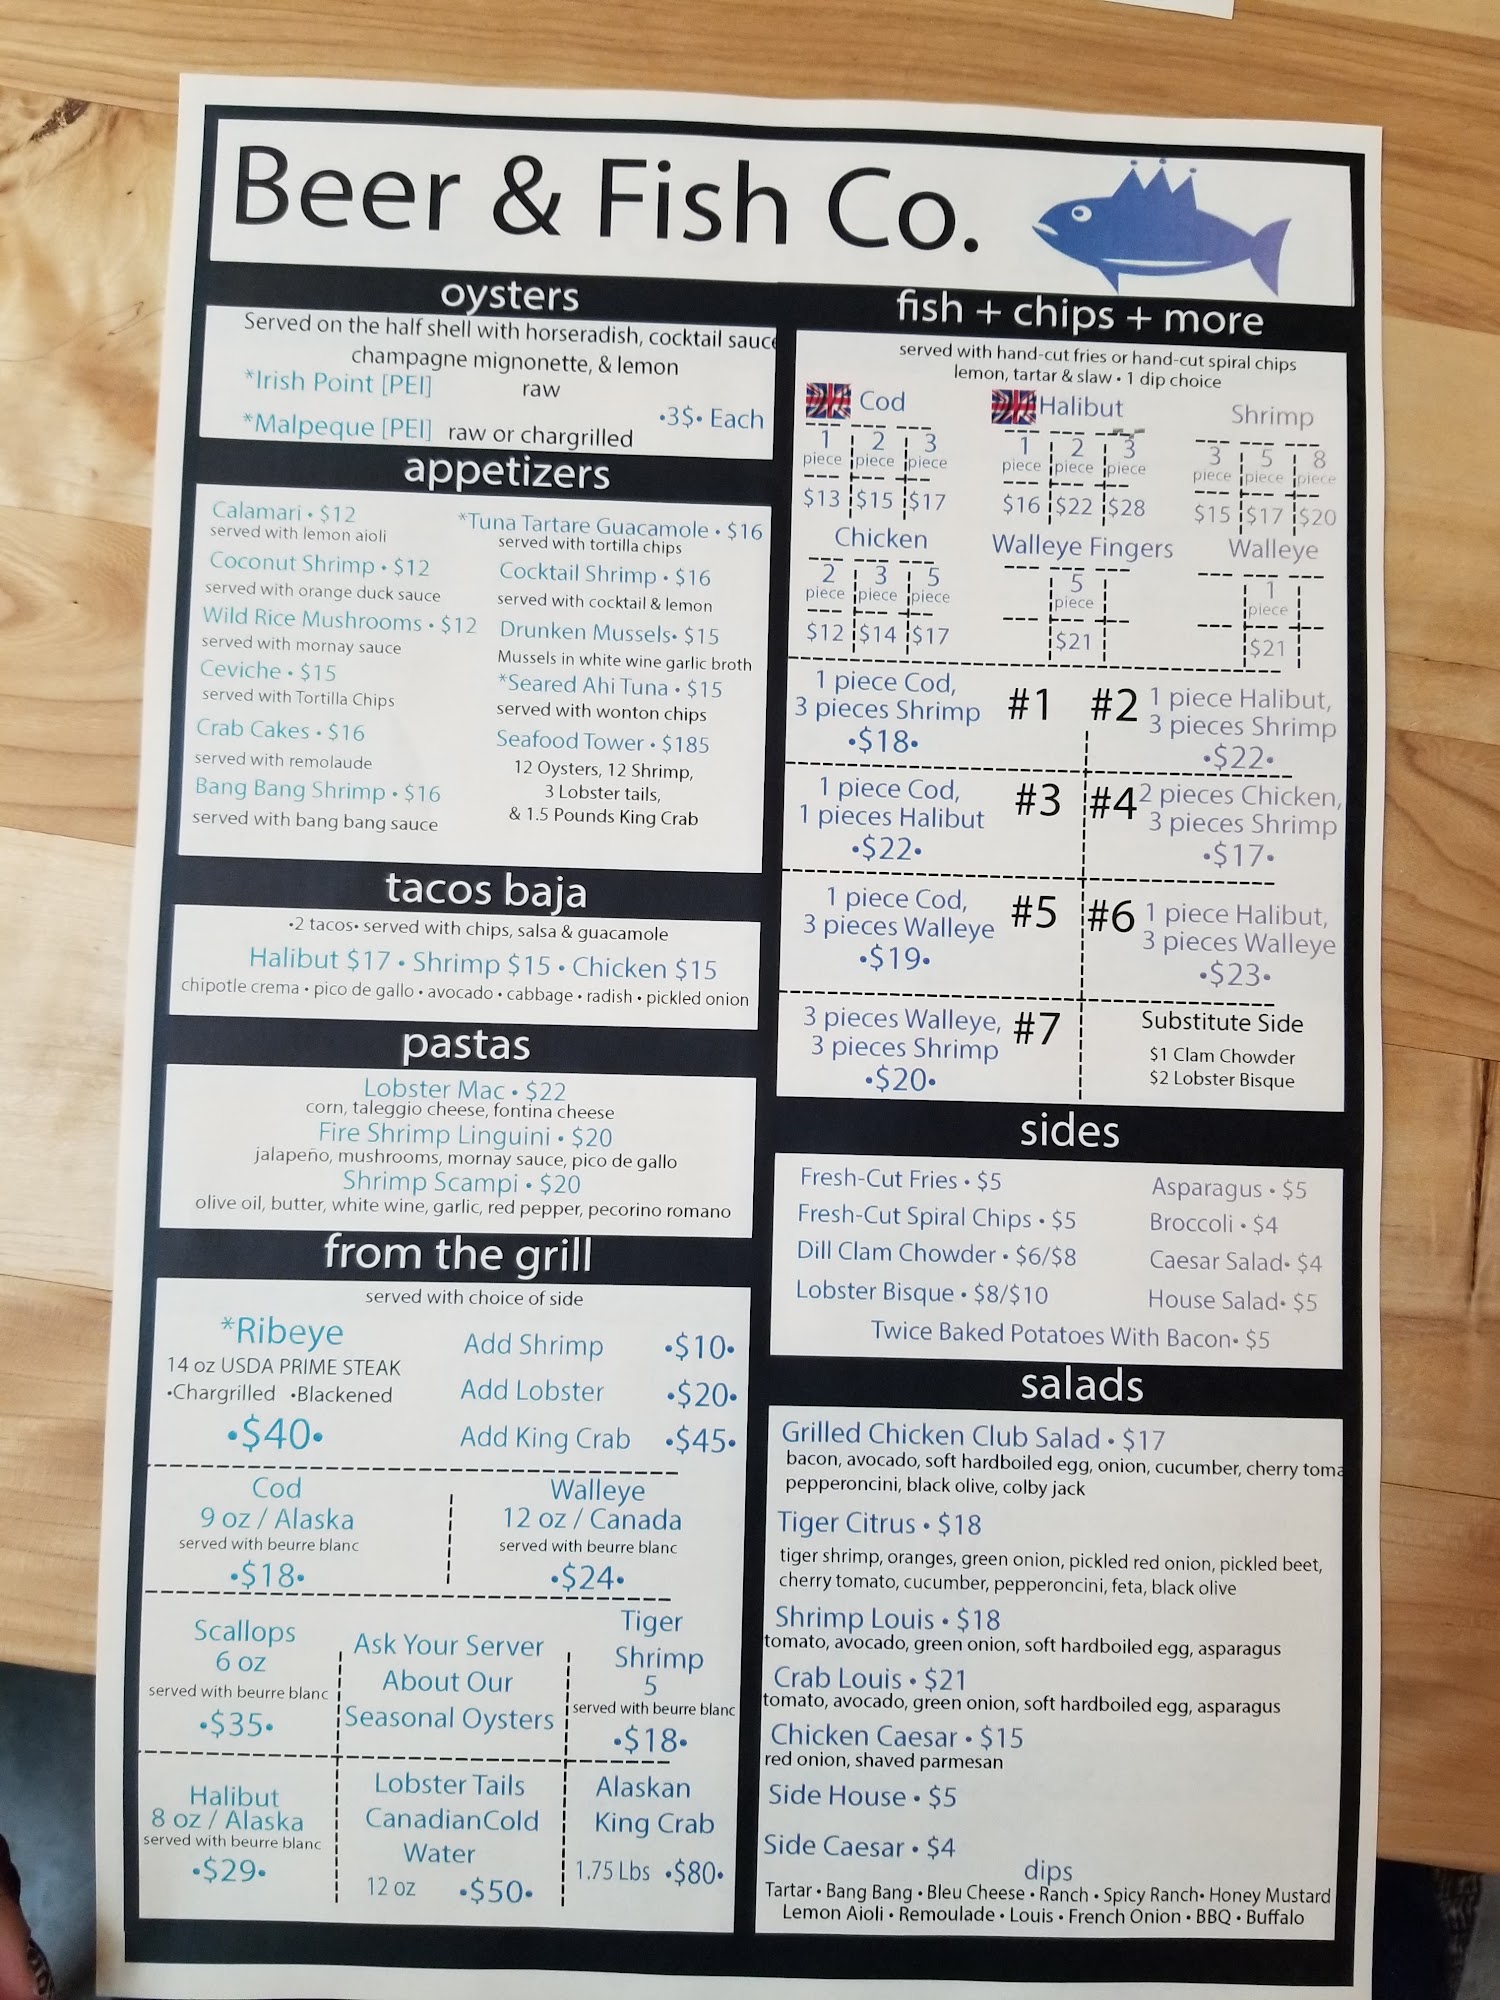 Beer & Fish Co.
oysters
Served on the half shell with horseradish, cocktail sauce
champagne mignonette, & lemon
*Irish Point [PEI] raw
•3$• Each
*Malpeque [PEI] raw or chargrilled
appetizers
Calamari • $12
served with lemon aioli
Coconut Shrimp • $12
served with orange duck sauce
Wild Rice Mushrooms • $12
served with mornay sauce
Ceviche • $15
served with Tortilla Chips
Crab Cakes • $16
served with remolaude
Bang Bang Shrimp • $16
served with bang bang sauce
*Tuna Tartare Guacamole • $16
served with tortilla chips
Cocktail Shrimp • $16
served with cocktail & lemon
Drunken Mussels• $15
Mussels in white wine garlic broth
*Seared Ahi Tuna • $15
served with wonton chips
Seafood Tower • $185
12 Oysters, 12 Shrimp,
3 Lobster tails,
& 1.5 Pounds King Crab
tacos baja
•2 tacos• served with chips, salsa & guacamole
Halibut $17 • Shrimp $15 • Chicken $15
chipotle crema • pico de gallo • avocado • cabbage • radish • pickled onion
pastas
Lobster Mac • $22
corn, taleggio cheese, fontina cheese
Fire Shrimp Linguini • $20
jalapeño, mushrooms, mornay sauce, pico de gallo
Shrimp Scampi • $20
olive oil, butter, white wine, garlic, red pepper, pecorino romano
from the grill
served with choice of side
*Ribeye
14 oz USDA PRIME STEAK
•Chargrilled •Blackened
•$40•
Add Shrimp •$10•
Add Lobster •$20•
Add King Crab •$45•
Cod
9 oz / Alaska
served with beurre blanc
•$18•
Walleye
12 oz / Canada
served with beurre blanc
•$24•
Scallops
6 oz
served with beurre blanc
•$35•
Ask Your Server
About Our
Seasonal Oysters
Tiger
Shrimp
5
served with beurre blanc
•$18•
Halibut
8 oz / Alaska
served with beurre blanc
•$29•
Lobster Tails
CanadianCold
Water
12 oz •$50•
Alaskan
King Crab
1.75 Lbs •$80•
fish + chips + more
served with hand-cut fries or hand-cut spiral chips
lemon, tartar & slaw • 1 dip choice
Cod
1 2 3
piece piece piece
$13 $15 $17
Halibut
1 2 3
piece piece piece
$16 $22 $28
Shrimp
3 5 8
piece piece piece
$15 $17 $20
Chicken
2 3 5
piece piece piece
$12 $14 $17
Walleye Fingers
5
piece
$21
Walleye
1
piece
$21
1 piece Cod,
3 pieces Shrimp #1
•$18•
#2 1 piece Halibut,
3 pieces Shrimp
•$22•
1 piece Cod,
1 pieces Halibut #3
•$22•
#4 2 pieces Chicken,
3 pieces Shrimp
•$17•
1 piece Cod,
3 pieces Walleye #5
•$19•
#6 1 piece Halibut,
3 pieces Walleye
•$23•
3 pieces Walleye,
3 pieces Shrimp #7
•$20•
Substitute Side
$1 Clam Chowder
$2 Lobster Bisque
sides
Fresh-Cut Fries • $5
Fresh-Cut Spiral Chips • $5
Dill Clam Chowder • $6/$8
Lobster Bisque • $8/$10
Asparagus • $5
Broccoli • $4
Caesar Salad• $4
House Salad• $5
Twice Baked Potatoes With Bacon• $5
salads
Grilled Chicken Club Salad • $17
bacon, avocado, soft hardboiled egg, onion, cucumber, cherry toma
pepperoncini, black olive, colby jack
Tiger Citrus • $18
tiger shrimp, oranges, green onion, pickled red onion, pickled beet,
cherry tomato, cucumber, pepperoncini, feta, black olive
Shrimp Louis • $18
tomato, avocado, green onion, soft hardboiled egg, asparagus
Crab Louis • $21
tomato, avocado, green onion, soft hardboiled egg, asparagus
Chicken Caesar • $15
red onion, shaved parmesan
Side House • $5
Side Caesar • $4
dips
Tartar • Bang Bang • Bleu Cheese • Ranch • Spicy Ranch• Honey Mustard
Lemon Aioli • Remoulade • Louis • French Onion • BBQ • Buffalo